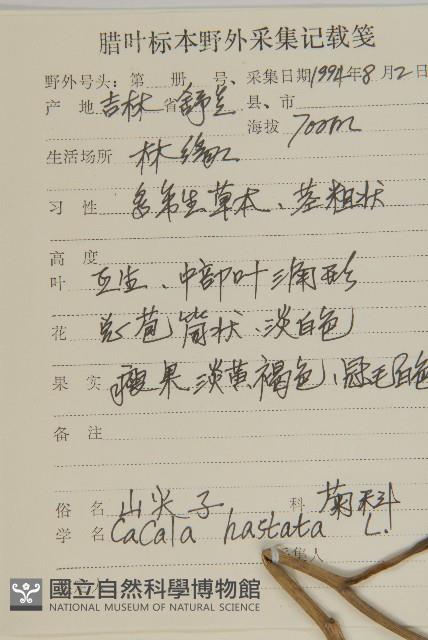 腊叶标本野外采集记载笺
野外号头：第 册 号、采集日期1994年8月2日
产 地 吉林 省 舒兰 县、市
海拔 700m
生活场所 林缘
习 性 多年生草本、茎粗状
高 度
叶 互生、中部叶三角形
花 总苞筒状、淡白色
果 实 瘦果淡黄褐色、冠毛白色
备 注
俗 名 山尖子 科 菊科
学 名 Cacala hastata L.
集人
國立自然科學博物館
NATIONAL MUSEUM OF NATURAL SCIENCE